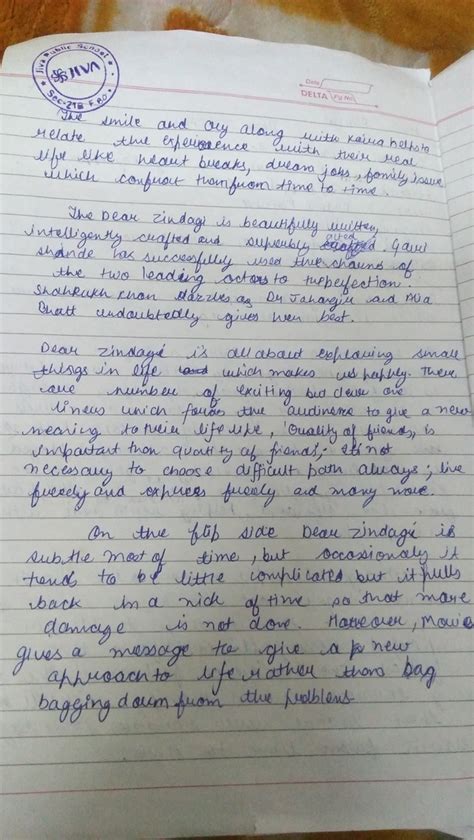 Jiva Public School
JIVA
Sec-21B F.BD.
Date
DELTA
The smile and cry along with Kaira helps to
relate the experience with their real
life like heart breaks, dream jobs, family issue
which confront them from time to time.
The Dear Zindagi is beautifully written,
intelligently crafted and superbly acted. Gauri
Shinde has successfully used the charms of
the two leading actors to perfection.
Shahrukh Khan dazzles as Dr Jahangir and Alia
Bhatt undoubtedly gives her best.
Dear Zindagi is all about exploring small
things in life which makes us happy. There
are number of exciting but clever one
liners which forces the audience to give a new
meaning to their life like, 'Quality of friends, is
important than quantity of friends; It's not
necessary to choose difficult path always; live
freely and express freely and many more.
On the flip side Dear Zindagi is
subtle most of time, but occasionaly it
tends to be little complicated but it pulls
back in a nick of time so that more
damage is not done. Moreover, Movie
gives a message to give a new
approach to life rather than bag
bagging down from the problems